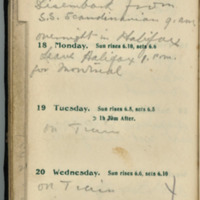 Disembark from
S.S. Scandinavian 9. am.
overnight in Halifax
18 Monday. Sun rises 6.10, sets 6.6
Leave Halifax 9. pm.
for Montreal
19 Tuesday. Sun rises 6.8, sets 6.8
on Train
20 Wednesday. Sun rises 6.6, sets 6.10
on Train